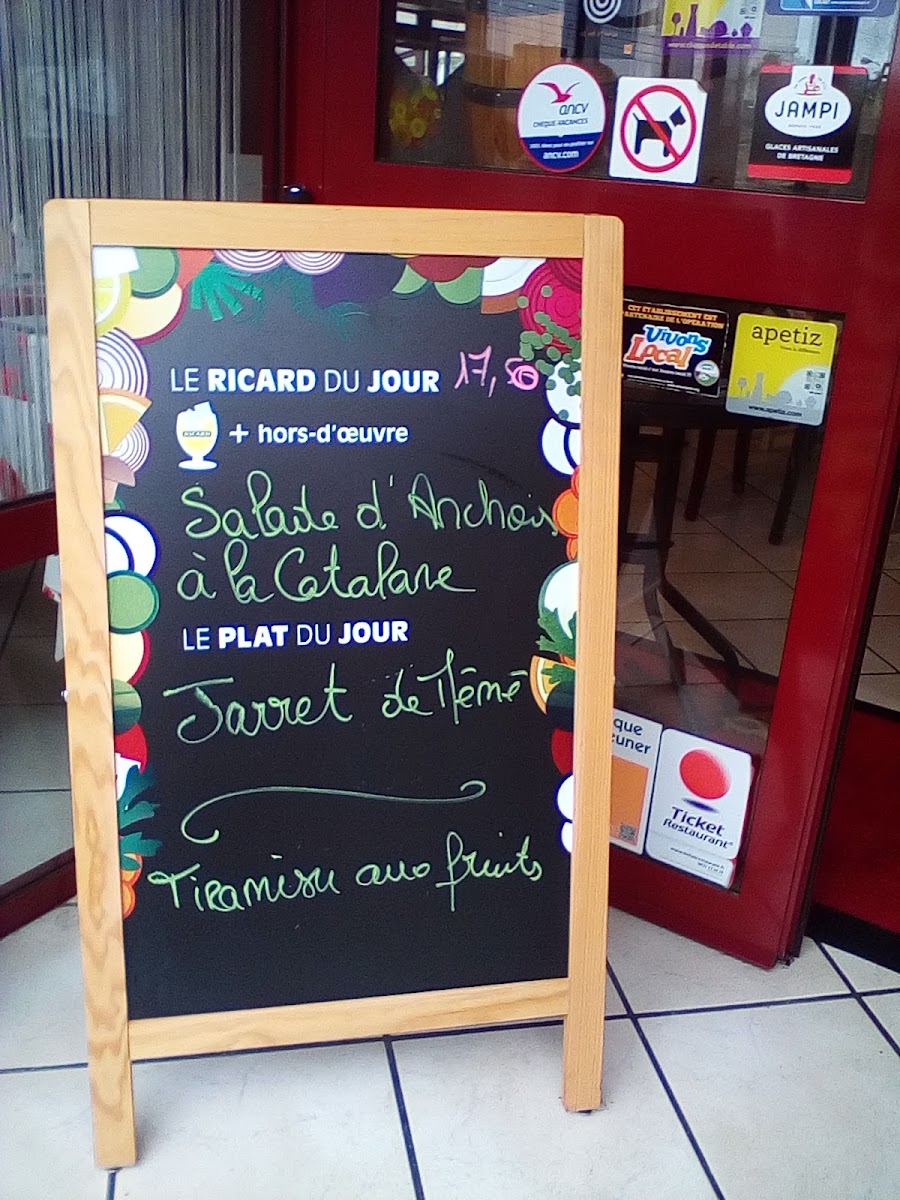 www.chequedetable.com
ancv
CHEQUE VACANCES
ancv.com
JAMPI
GLACES ARTISANALES
DE BRETAGNE
LE RICARD DU JOUR 17,50
RICARD
+ hors-d'œuvre
Salade d'Anchois
à la Catalane
LE PLAT DU JOUR
Jarret de Mémé
Tiramisu aux fruits
CET ÉTABLISSEMENT EST
PARTENAIRE DE L'OPÉRATION
Vivons
Local
apetiz
www.apetiz.com
que
euner
Ticket
Restaurant